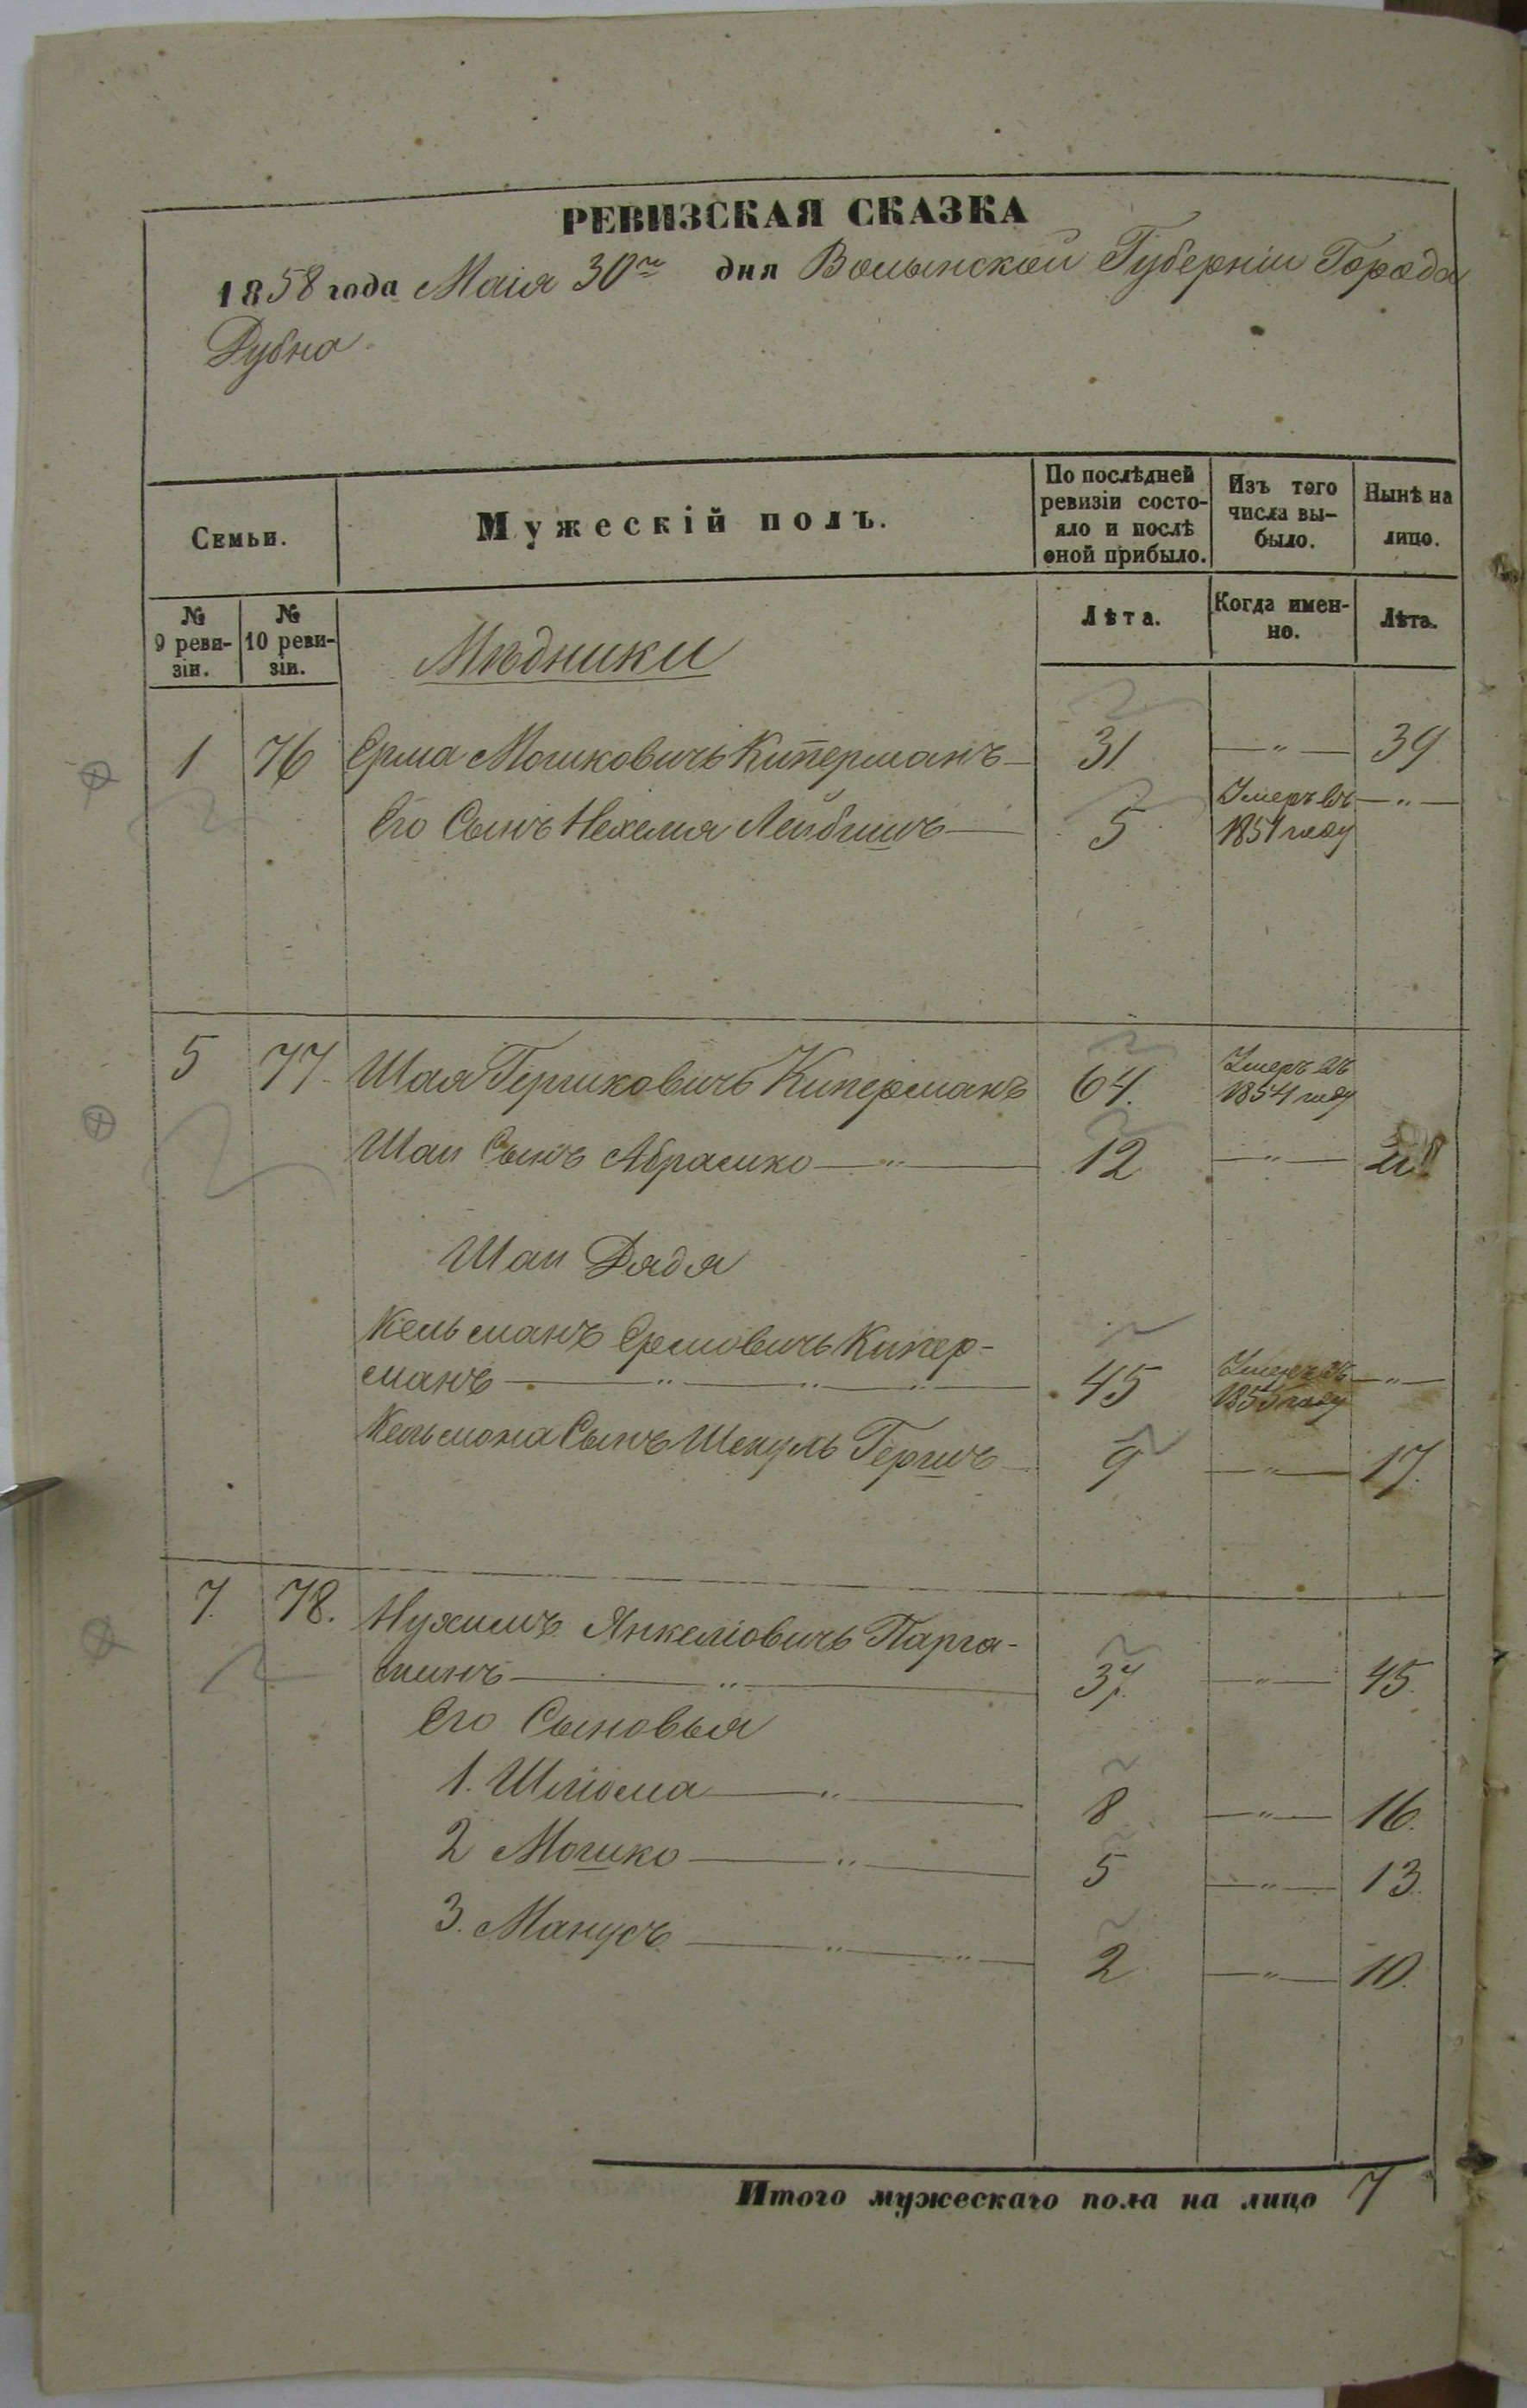 РЕВИЗСКАЯ СКАЗКА
1858 года Маія 30го дня Волынской Губерніи Города
Дубна
Семьи.
Мужескій полъ.
По послѣдней
ревизіи состо-
яло и послѣ
оной прибыло.
Изъ того
числа вы-
было.
Нынѣ на
лицо.
№
9 реви-
зіи.
№
10 реви-
зіи.
Лѣта.
Когда имен-
но.
Лѣта.
Мѣдники
1 76 Ерма Мошковичъ Киперманъ 31 — " — 39
Его Сынъ Нехемія Лейбишъ 5 Умеръ въ — " —
1851 году
5 77. Шая Гершковичъ Киперманъ 64. Умеръ въ
1854 году
Шаи Сынъ Абрамко — " — 12 — " —
Шаи Дядя
Кельманъ Ермовичъ Кипер-
манъ — " — " — " — 45 Умеръ въ — " —
1855 году
Кельмана Сынъ Шекуль Гершъ 9 — " — 17.
7. 78. Нухимъ Янкеліовичъ Парга-
минъ — " — 37. — " — 45.
Его Сыновья
1. Шліома — " — 8 — " — 16.
2 Мошко — " — 5 — " — 13.
3. Манусъ — " — " — 2 — " — 10.
Итого мужескаго пола на лицо 7